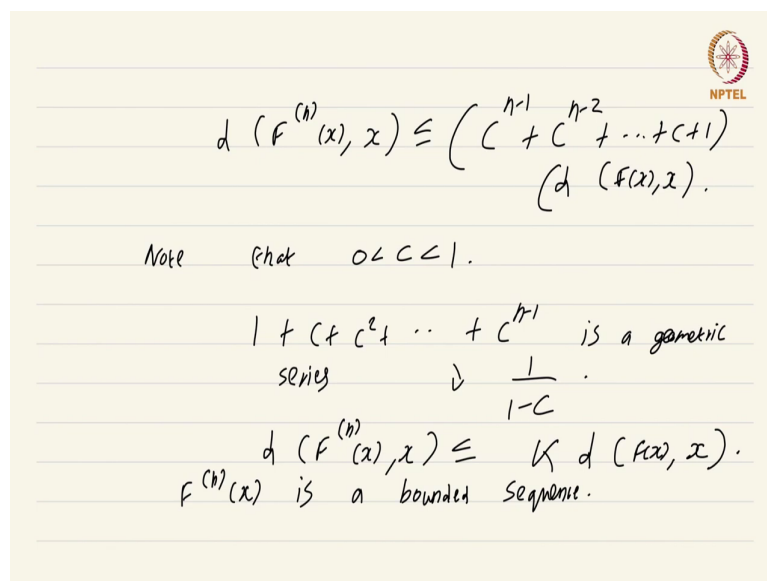 NPTEL
d (F^(n)(x), x) ≤ (C^n-1 + C^n-2 + ... + C + 1)
(d (F(x), x).
Note that 0 < C < 1.
1 + C + C^2 + .. + C^n-1 is a geometric
series ↓ 1/1-C .
d (F^(n)(x), x) ≤ K d (F(x), x).
F^(n)(x) is a bounded sequence.